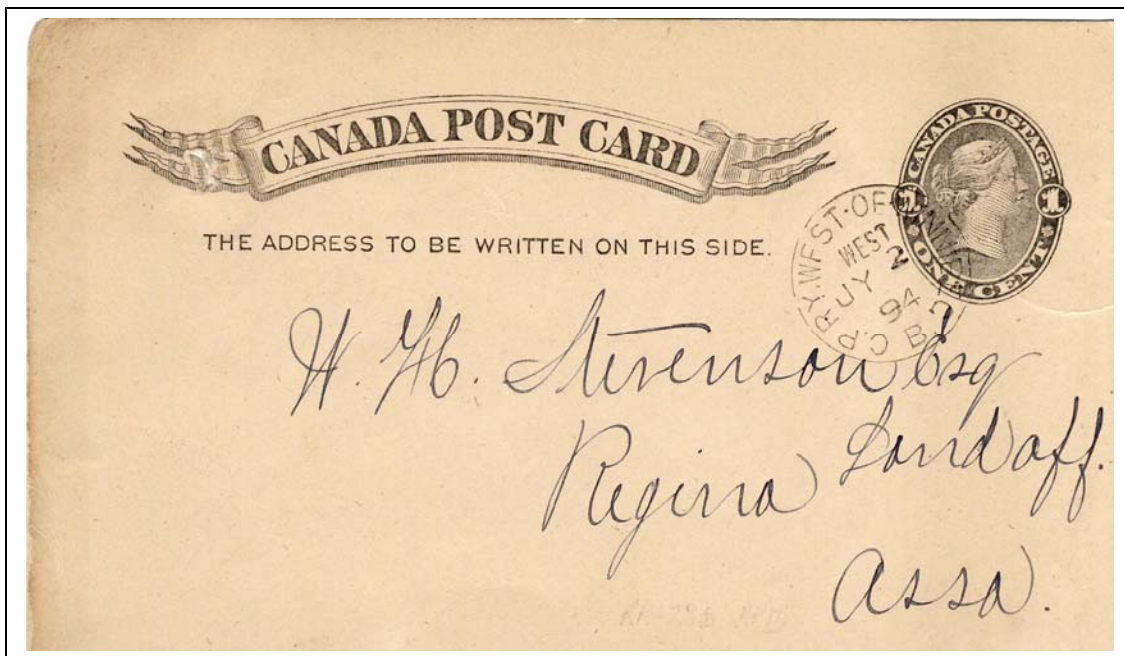 CANADA POST CARD
CANADA POSTAGE
1 1
ONE CENT
THE ADDRESS TO BE WRITTEN ON THIS SIDE.
C.P.RY. WEST·OF·WINN
WEST
JY 2
94
W. H. Stevenson Esq
Land off.
Regina
Assa.